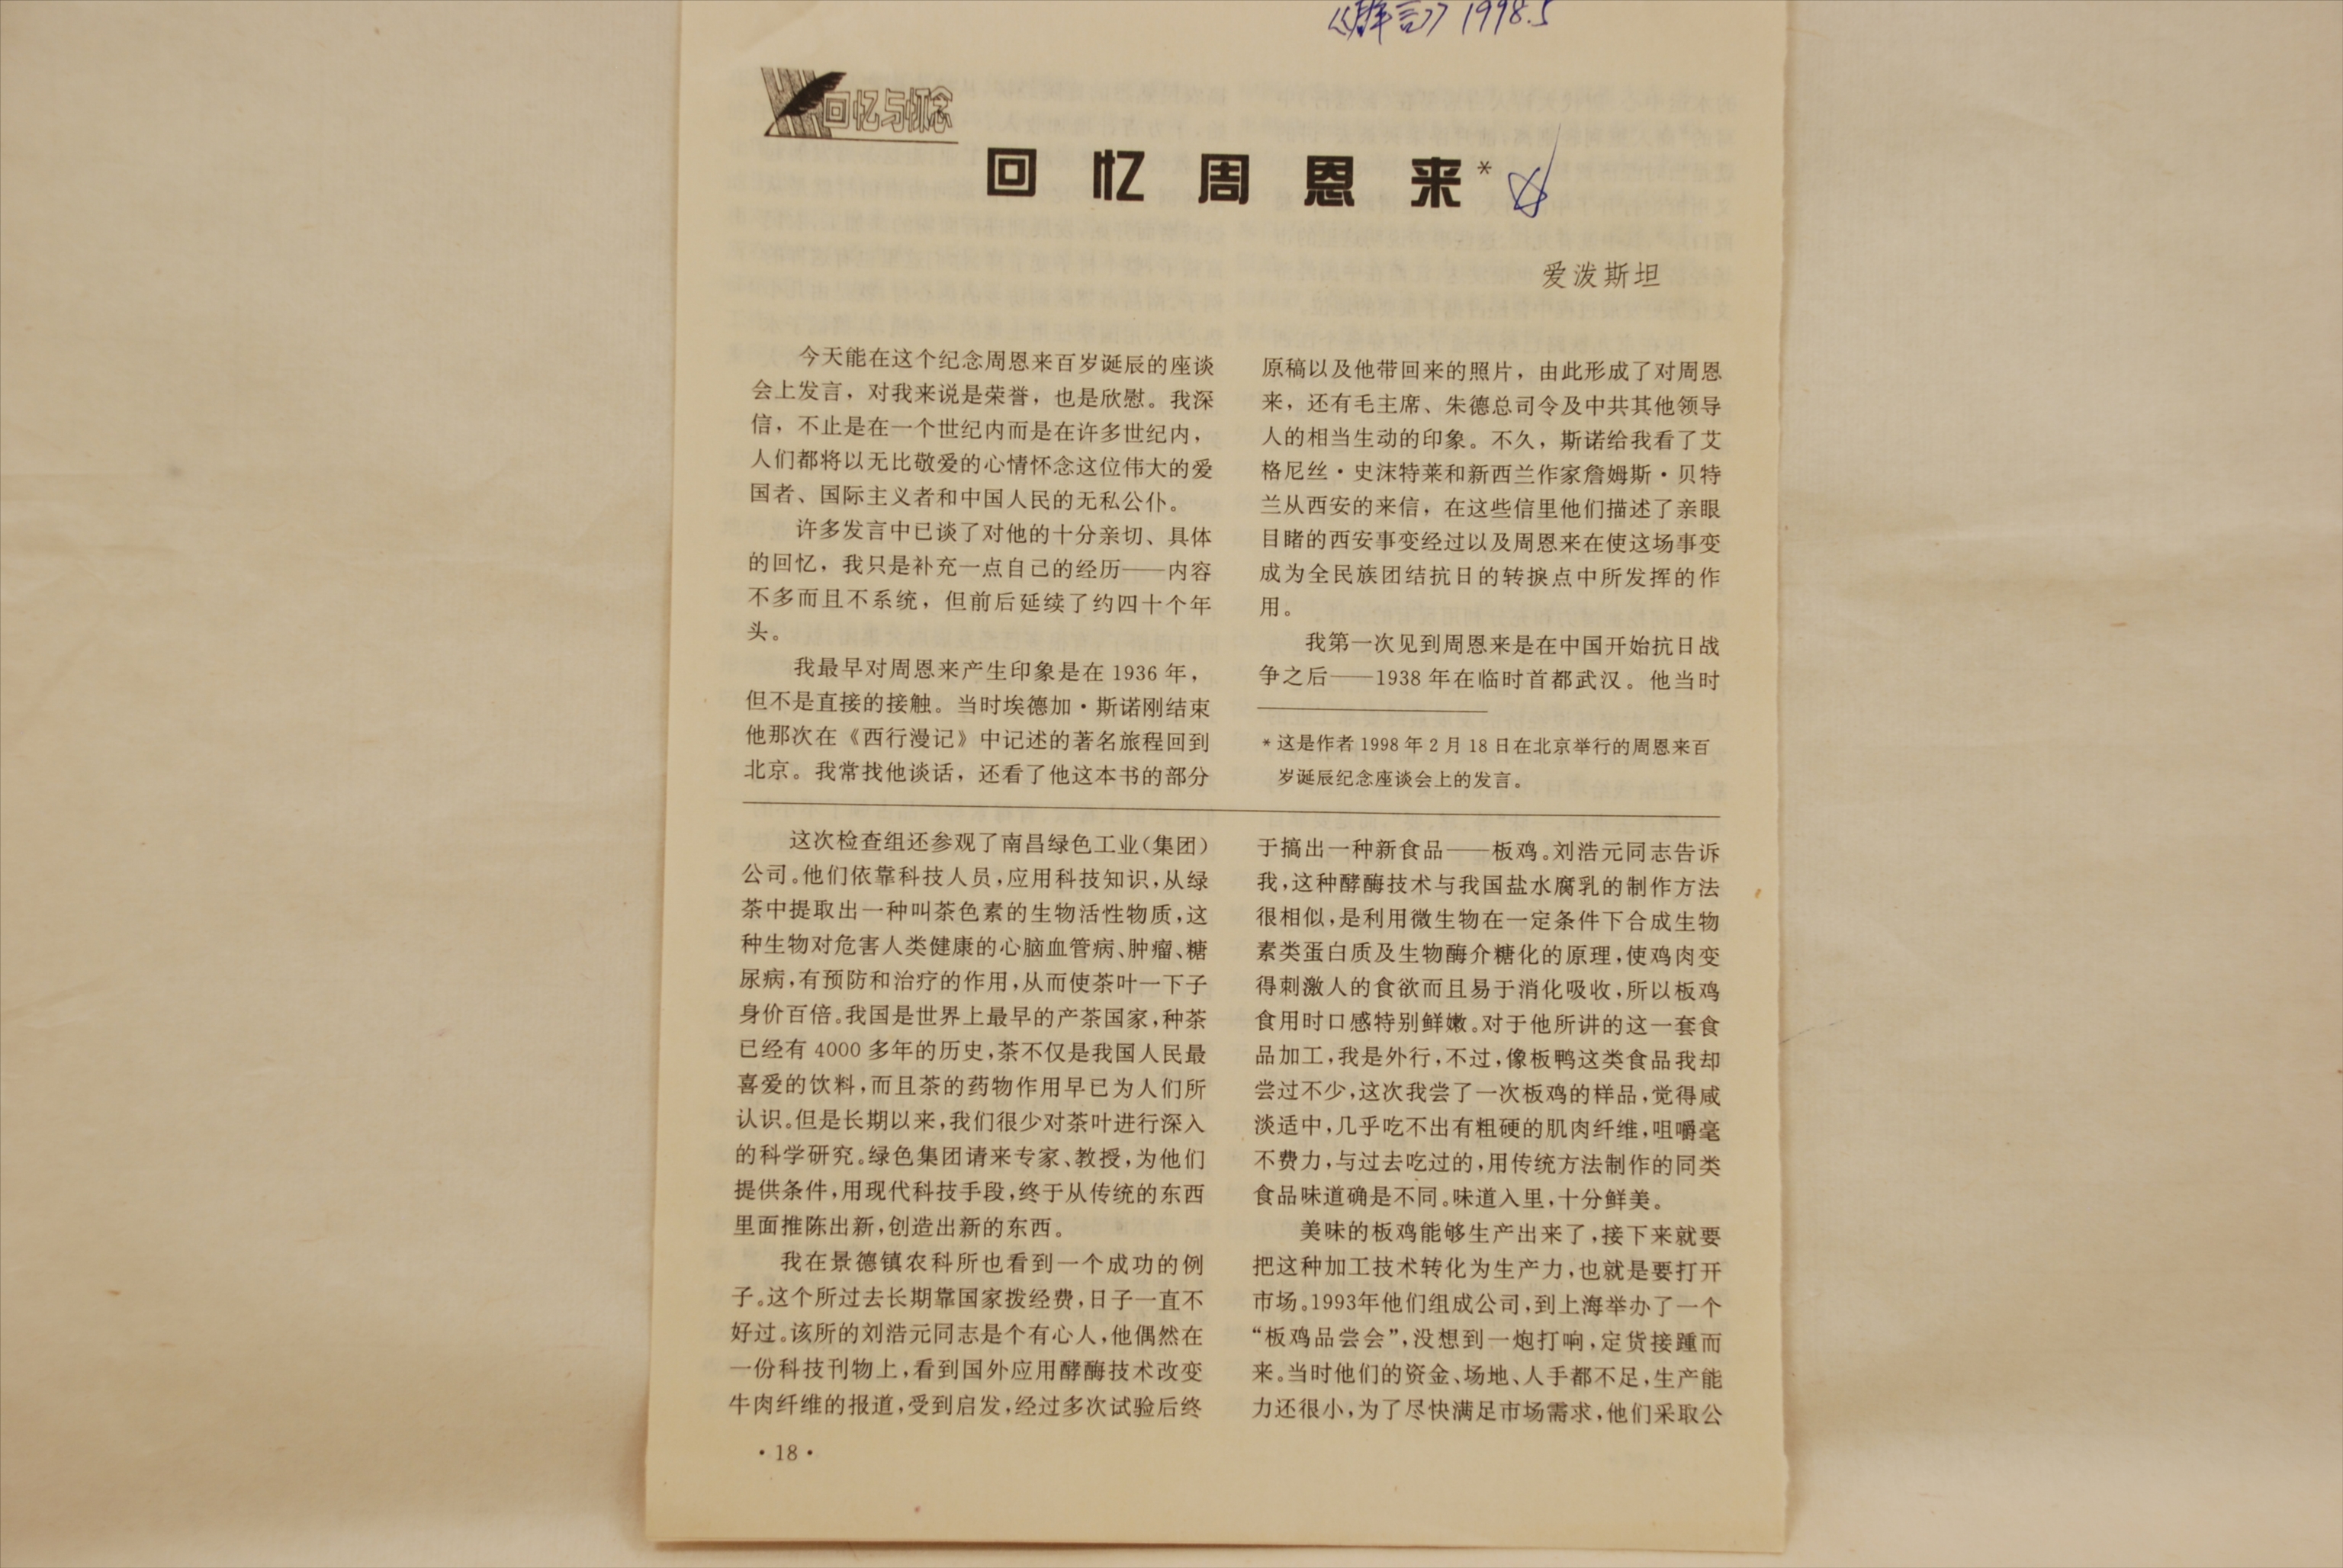 《群言》1998.5
回忆与怀念
回忆周恩来*
爱泼斯坦
今天能在这个纪念周恩来百岁诞辰的座谈
会上发言，对我来说是荣誉，也是欣慰。我深
信，不止是在一个世纪内而是在许多世纪内，
人们都将以无比敬爱的心情怀念这位伟大的爱
国者、国际主义者和中国人民的无私公仆。
许多发言中已谈了对他的十分亲切、具体
的回忆，我只是补充一点自己的经历——内容
不多而且不系统，但前后延续了约四十个年
头。
我最早对周恩来产生印象是在 1936 年，
但不是直接的接触。当时埃德加·斯诺刚结束
他那次在《西行漫记》中记述的著名旅程回到
北京。我常找他谈话，还看了他这本书的部分
原稿以及他带回来的照片，由此形成了对周恩
来，还有毛主席、朱德总司令及中共其他领导
人的相当生动的印象。不久，斯诺给我看了艾
格尼丝·史沫特莱和新西兰作家詹姆斯·贝特
兰从西安的来信，在这些信里他们描述了亲眼
目睹的西安事变经过以及周恩来在使这场事变
成为全民族团结抗日的转捩点中所发挥的作
用。
我第一次见到周恩来是在中国开始抗日战
争之后——1938 年在临时首都武汉。他当时
* 这是作者 1998 年 2 月 18 日在北京举行的周恩来百
岁诞辰纪念座谈会上的发言。
这次检查组还参观了南昌绿色工业(集团)
公司。他们依靠科技人员,应用科技知识,从绿
茶中提取出一种叫茶色素的生物活性物质,这
种生物对危害人类健康的心脑血管病、肿瘤、糖
尿病,有预防和治疗的作用,从而使茶叶一下子
身价百倍。我国是世界上最早的产茶国家,种茶
已经有 4000 多年的历史,茶不仅是我国人民最
喜爱的饮料,而且茶的药物作用早已为人们所
认识。但是长期以来,我们很少对茶叶进行深入
的科学研究。绿色集团请来专家、教授,为他们
提供条件,用现代科技手段,终于从传统的东西
里面推陈出新,创造出新的东西。
我在景德镇农科所也看到一个成功的例
子。这个所过去长期靠国家拨经费,日子一直不
好过。该所的刘浩元同志是个有心人,他偶然在
一份科技刊物上,看到国外应用酵酶技术改变
牛肉纤维的报道,受到启发,经过多次试验后终
于搞出一种新食品——板鸡。刘浩元同志告诉
我,这种酵酶技术与我国盐水腐乳的制作方法
很相似,是利用微生物在一定条件下合成生物
素类蛋白质及生物酶介糖化的原理,使鸡肉变
得刺激人的食欲而且易于消化吸收,所以板鸡
食用时口感特别鲜嫩。对于他所讲的这一套食
品加工,我是外行,不过,像板鸭这类食品我却
尝过不少,这次我尝了一次板鸡的样品,觉得咸
淡适中,几乎吃不出有粗硬的肌肉纤维,咀嚼毫
不费力,与过去吃过的,用传统方法制作的同类
食品味道确是不同。味道入里,十分鲜美。
美味的板鸡能够生产出来了,接下来就要
把这种加工技术转化为生产力,也就是要打开
市场。1993年他们组成公司,到上海举办了一个
“板鸡品尝会”,没想到一炮打响,定货接踵而
来。当时他们的资金、场地、人手都不足,生产能
力还很小,为了尽快满足市场需求,他们采取公
·18·